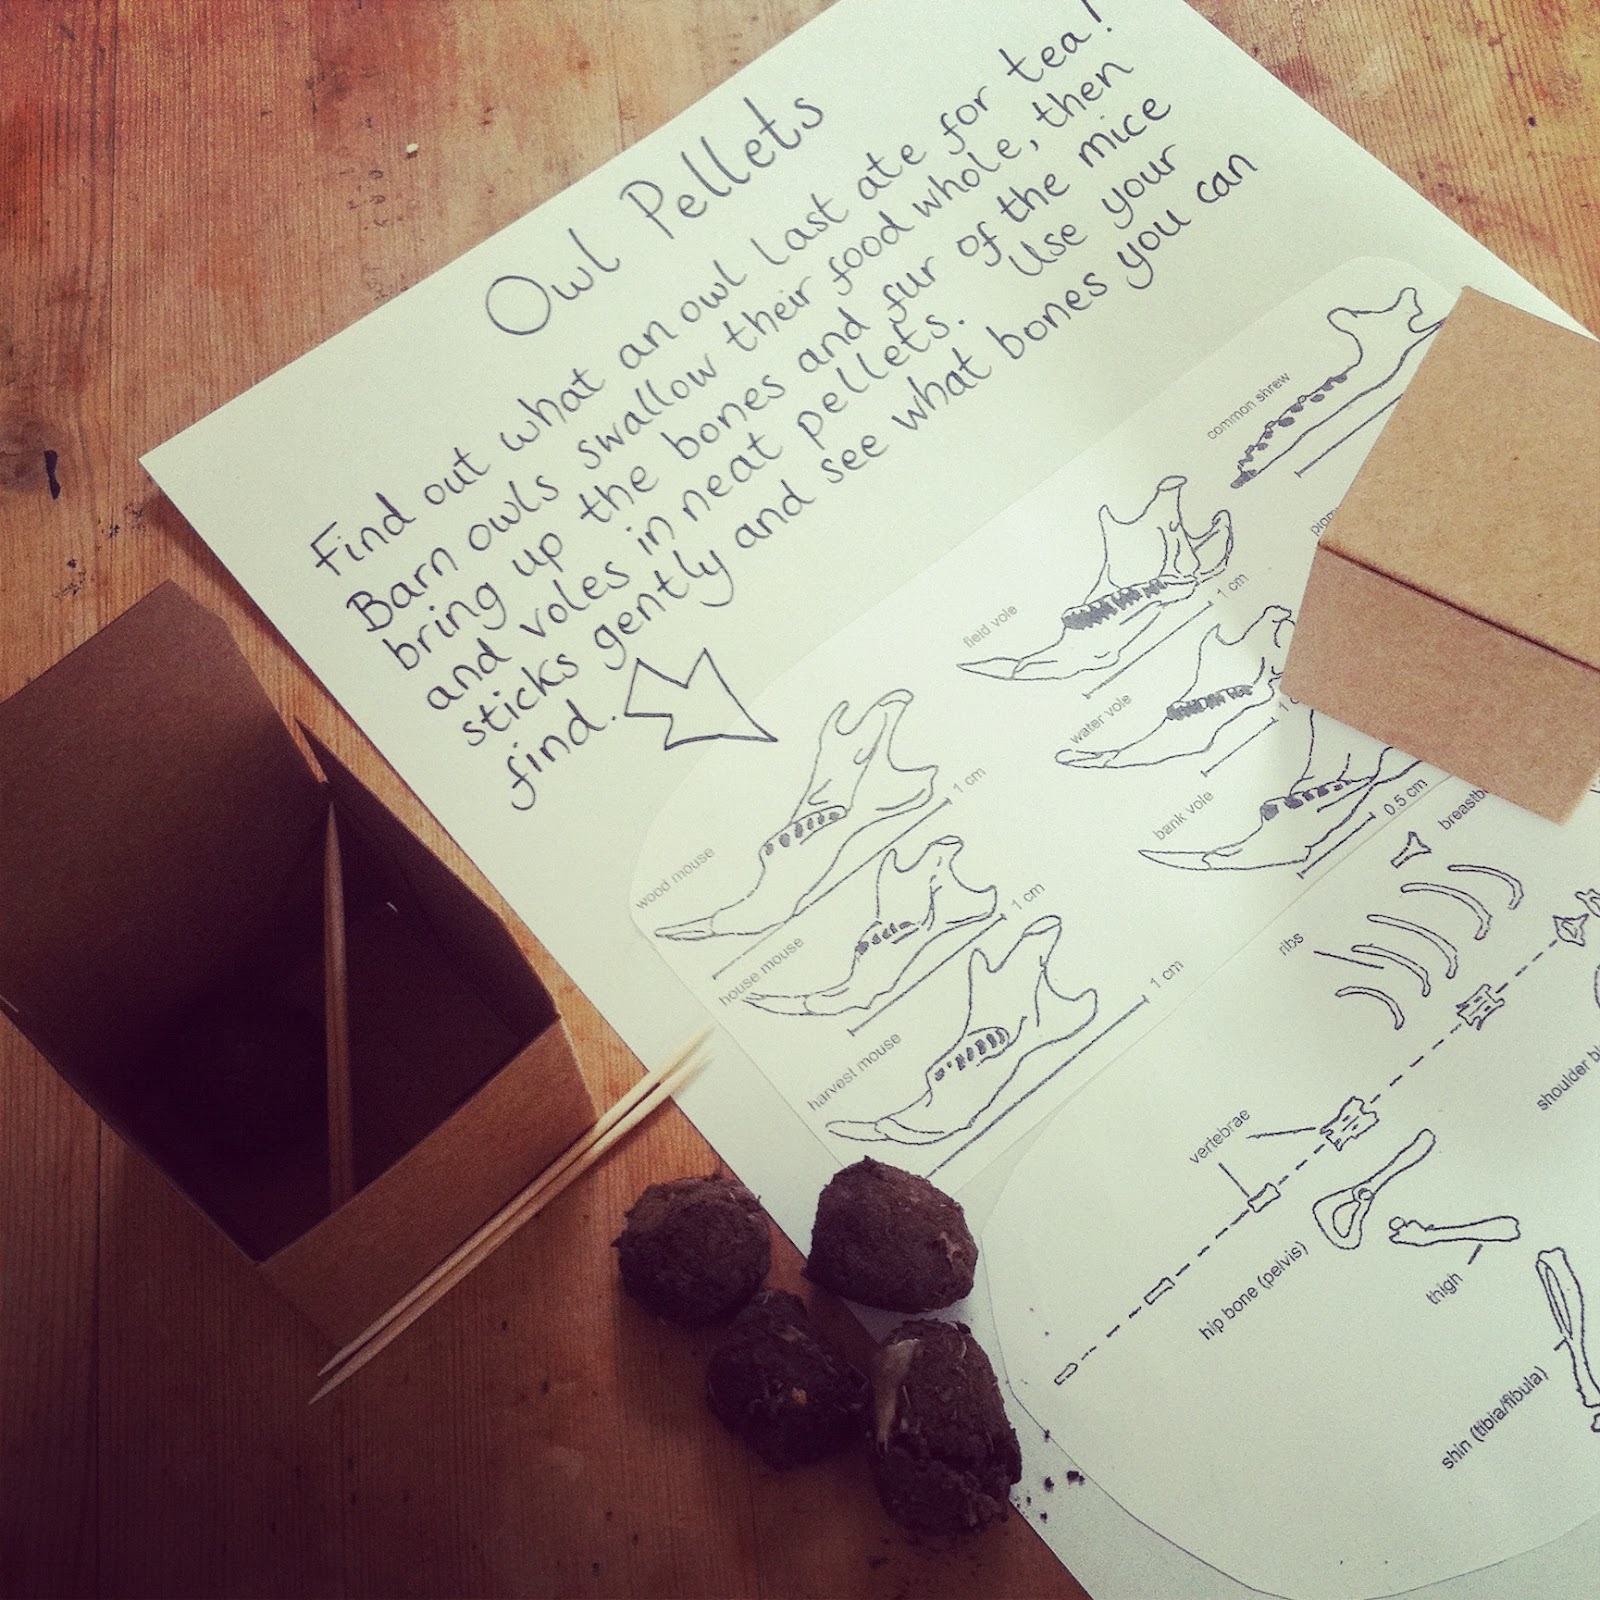 Owl Pellets
Find out what an owl last ate for tea!
Barn owls swallow their food whole, then
bring up the bones and fur of the mice
and voles in neat pellets. Use your
sticks gently and see what bones you can
find.
common shrew
field vole
1 cm
water vole
bank vole
0.5 cm
wood mouse
1 cm
house mouse
1 cm
harvest mouse
1 cm
ribs
vertebrae
hip bone (pelvis)
thigh
shin (tibia/fibula)
shoulder